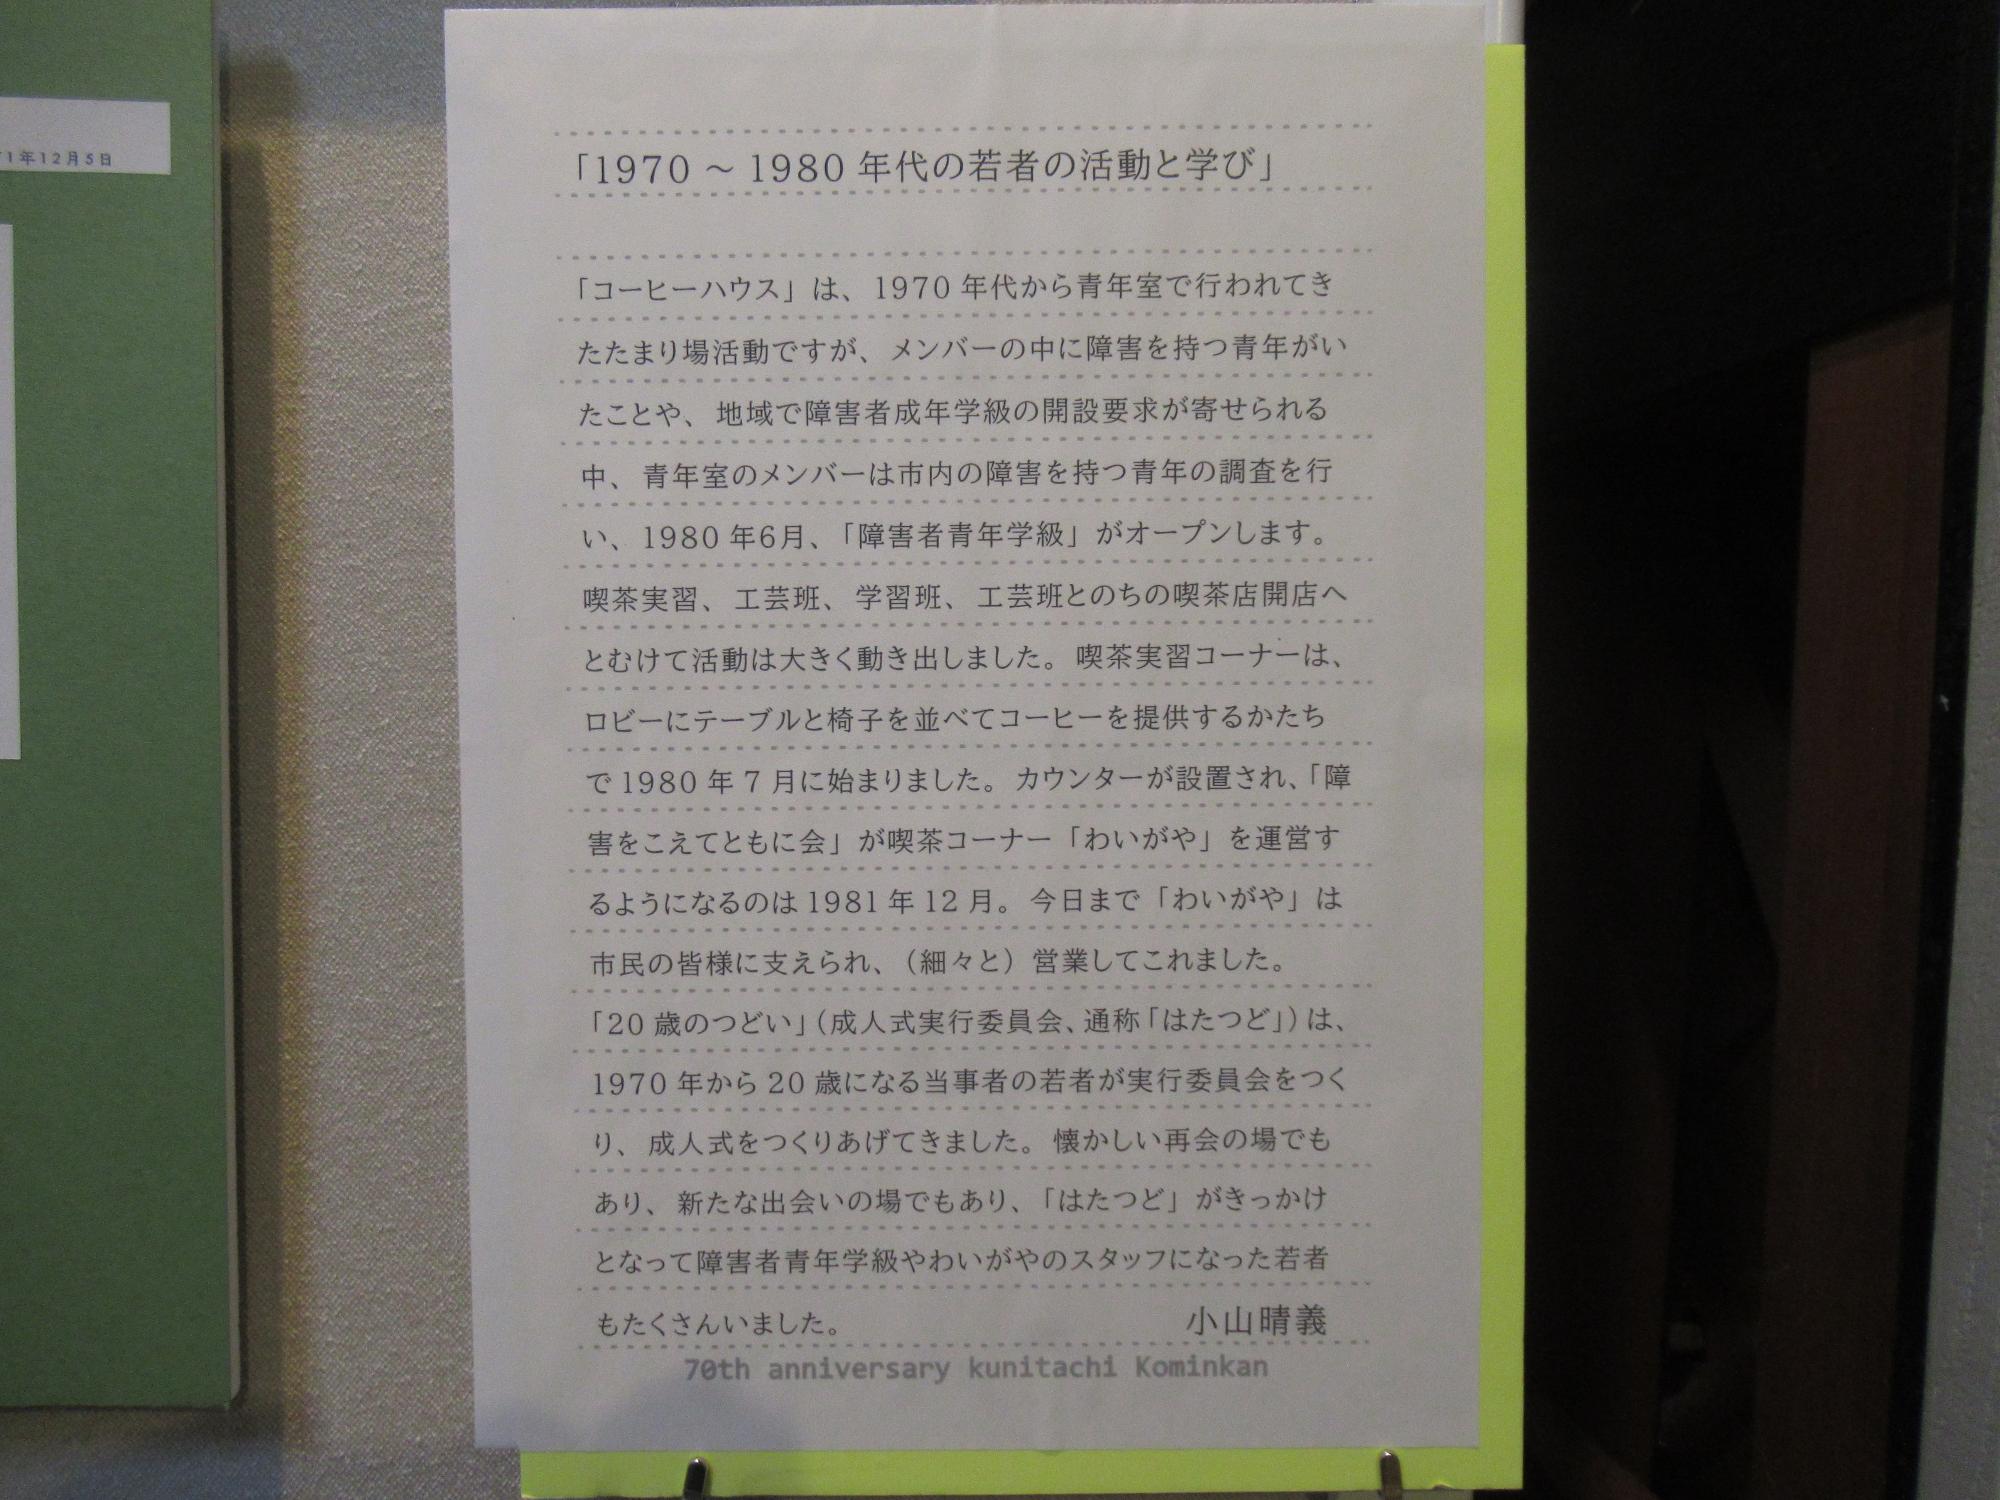 1年12月5日
「1970 ～ 1980 年代の若者の活動と学び」
「コーヒーハウス」は、1970 年代から青年室で行われてき
たたまり場活動ですが、メンバーの中に障害を持つ青年がい
たことや、地域で障害者成年学級の開設要求が寄せられる
中、青年室のメンバーは市内の障害を持つ青年の調査を行
い、1980 年6月、「障害者青年学級」がオープンします。
喫茶実習、工芸班、学習班、工芸班とのちの喫茶店開店へ
とむけて活動は大きく動き出しました。喫茶実習コーナーは、
ロビーにテーブルと椅子を並べてコーヒーを提供するかたち
で 1980 年 7 月に始まりました。カウンターが設置され、「障
害をこえてともに会」が喫茶コーナー「わいがや」を運営す
るようになるのは 1981 年 12 月。今日まで「わいがや」は
市民の皆様に支えられ、（細々と）営業してこれました。
「20 歳のつどい」（成人式実行委員会、通称「はたつど」）は、
1970 年から 20 歳になる当事者の若者が実行委員会をつく
り、成人式をつくりあげてきました。懐かしい再会の場でも
あり、新たな出会いの場でもあり、「はたつど」がきっかけ
となって障害者青年学級やわいがやのスタッフになった若者
もたくさんいました。 小山晴義
70th anniversary kunitachi Kominkan